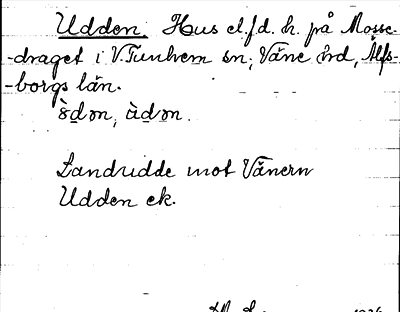 Udden. Hus el. f.d. h. på Mosse-
-draget i V. Tunhem sn, Väne hrd, Älfs-
-borgs län.
Landudde mot Vänern
Udden ek.